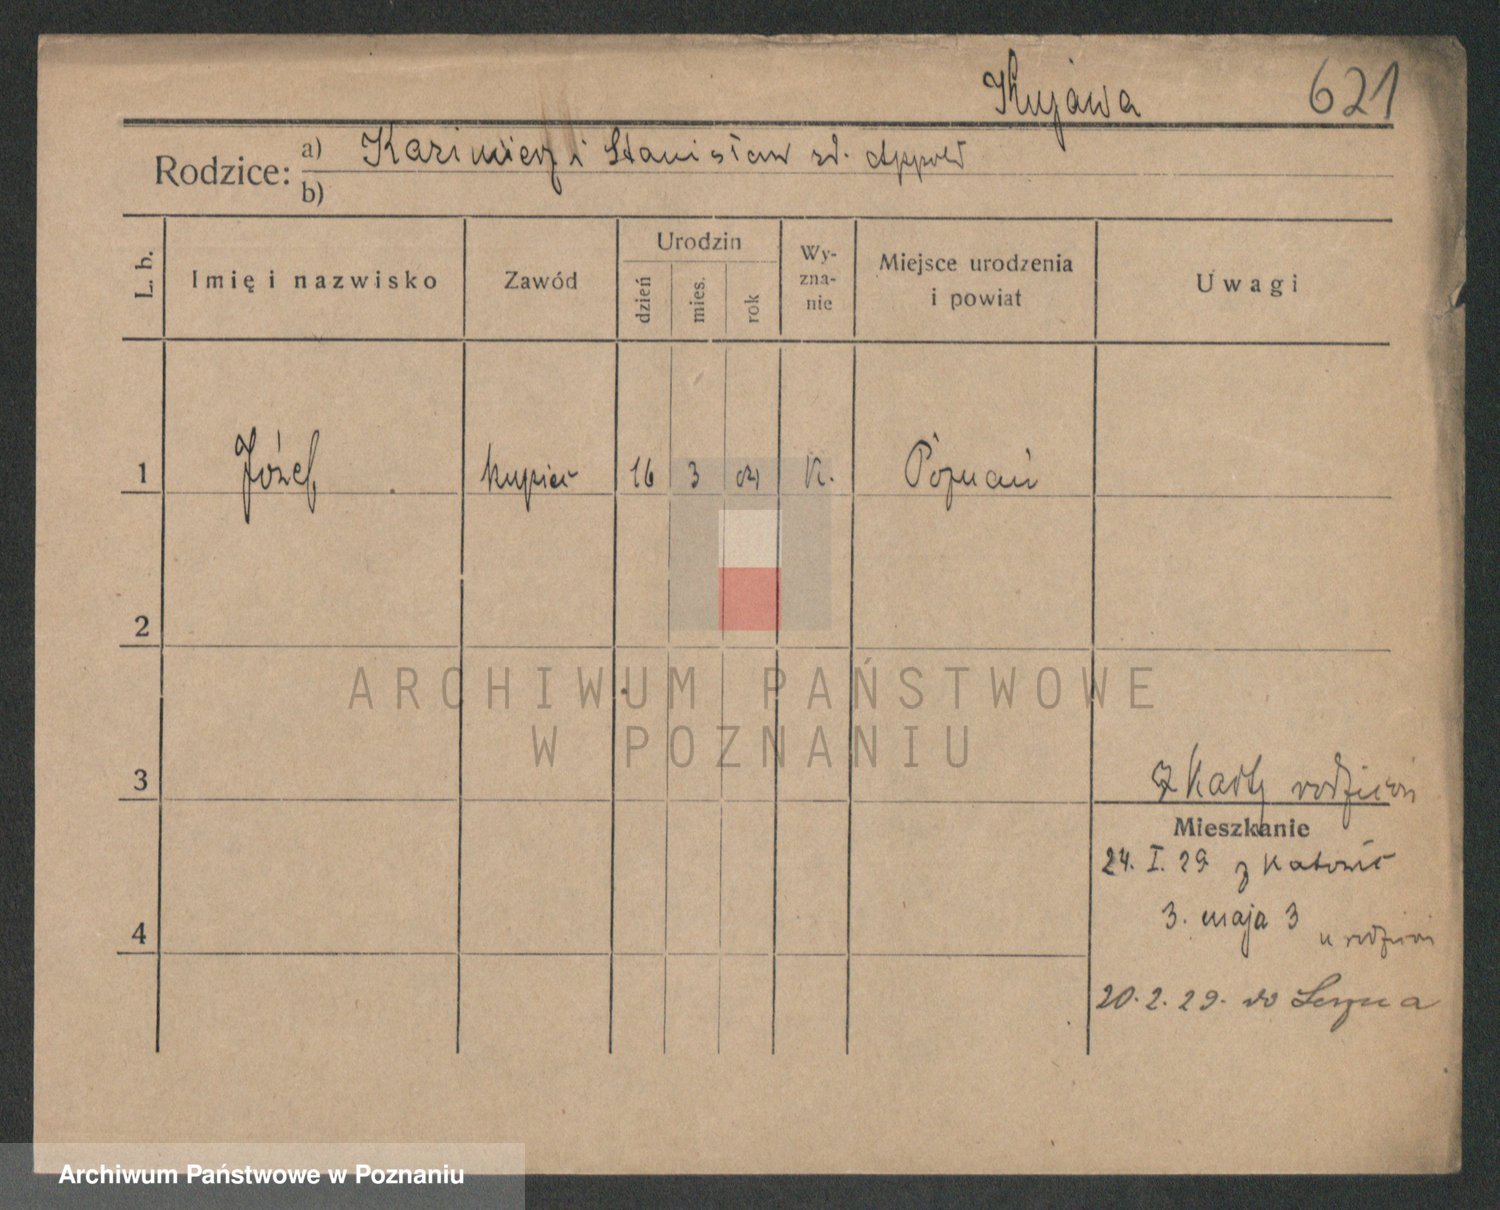 Kujawa 621
Rodzice: a) Kazimierz i Stanisława zd. Appold
b)
L. b. Imię i nazwisko Zawód Urodzin dzień mies. rok Wy-zna-nie Miejsce urodzenia i powiat Uwagi
1 Józef kupiec 16 3 K. Poznań
2
ARCHIWUM PAŃSTWOWE
W POZNANIU
3 z karty rodziców
Mieszkanie
24. I. 29 z Katowic
3. maja 3
u rodziców
4
20. 2. 29. do Leszna
Archiwum Państwowe w Poznaniu